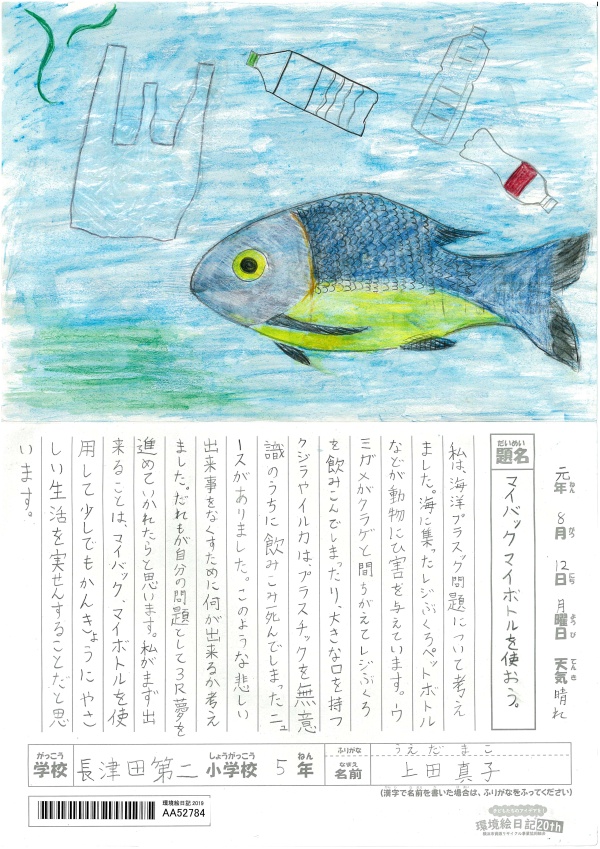 元年 8月 12日 月曜日 天気 晴れ
ねん がつ にち ようび てんき
だいめい
題名 マイバックマイボトルを使おう。
私は、海洋プラスック問題について考え
ました。海に集ったレジぶくろペットボトル
などが動物にひ害を与えています。ウ
ミガメがクラゲと間ちがえてレジぶくろ
を飲みこんでしまったり、大きな口を持つ
クジラやイルカは、プラスチックを無意
識のうちに飲みこみ死んでしまったニュ
ースがありました。このような悲しい
出来事をなくすために何が出来るか考え
ました。だれもが自分の問題として3R夢を
進めていかれたらと思います。私がまず出
来ることは、マイバック、マイボトルを使
用して少しでもかんきょうにやさ
しい生活を実せんすることだと思
います。
がっこう しょうがっこう ねん ふりがな うえだ まこ
学校 長津田第二 小学校 5年 なまえ 名前 上田 真子
(漢字で名前を書いた場合は、ふりがなをふってください)
環境絵日記2019
AA52784
環境絵日記20th